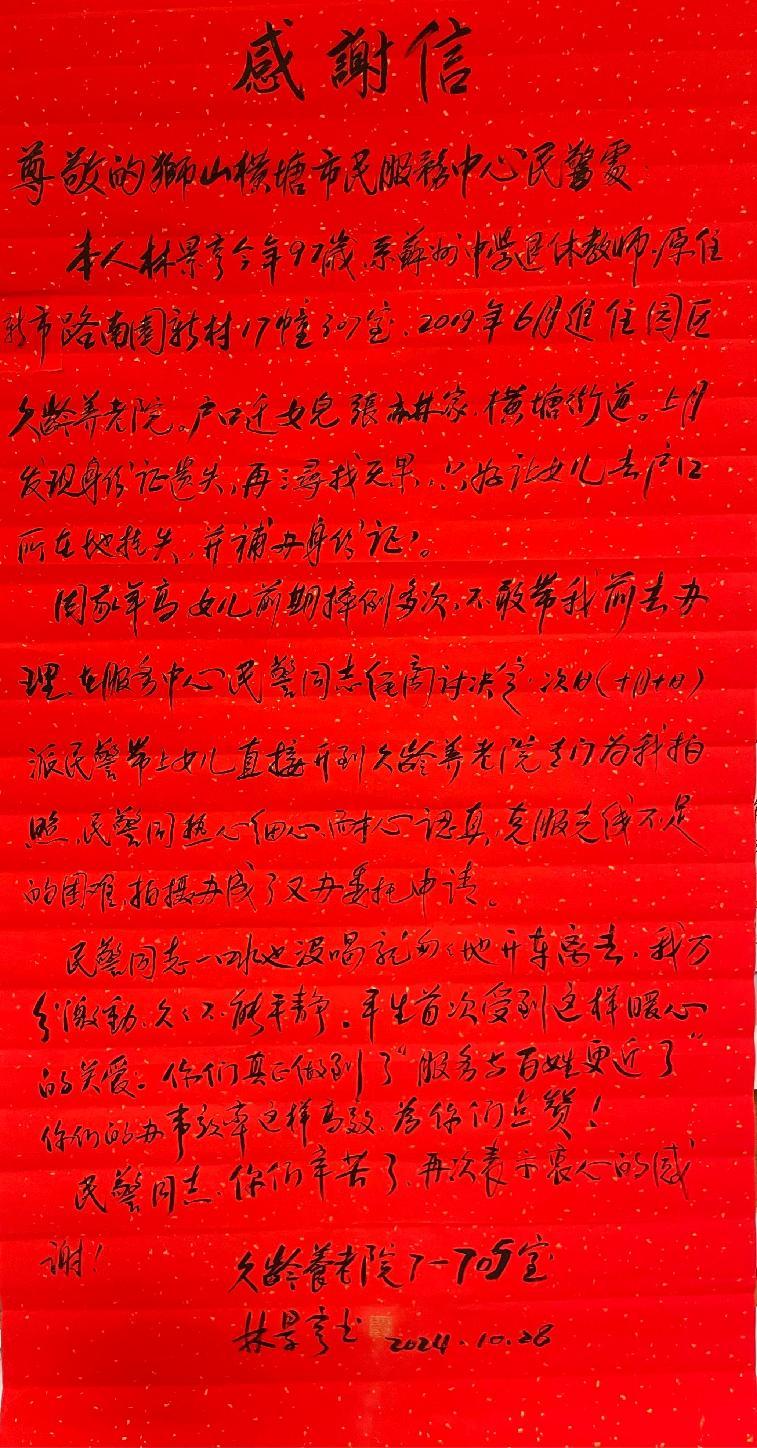 感謝信
尊敬的獅山横塘市民服務中心民警處
本人林景亨今年97歲,系蘇州中學退休教師.原住
新市路南園新村17幢307室.2019年6月進住园区
久龄养老院。户口迁女兒張林家,横塘街道。上月
发现身份证遗失,再三尋找无果,只好让女儿去户口
所在地挂失,并補办身份证。
因我年高女儿前期摔倒多次,不敢带我前去办
理,在服务中心民警同志经商讨决定次日(十月十日)
派民警带上女儿直接开到久龄养老院专门为我拍
照,民警同热心细心,耐心認真,克服光线不足
的困难,拍摄办成了又办委托申请。
民警同志一口水也没喝就匆匆地开车离去,我万
分激動,久久不能平静,平生首次受到这样暖心
的关爱:你们真正做到了"服务与百姓更近了"
你们的办事效率这样高效,為你们点赞!
民警同志,你们辛苦了,再次表示衷心的感
謝!
久龄養老院7-705室
林景亨书 2024.10.28